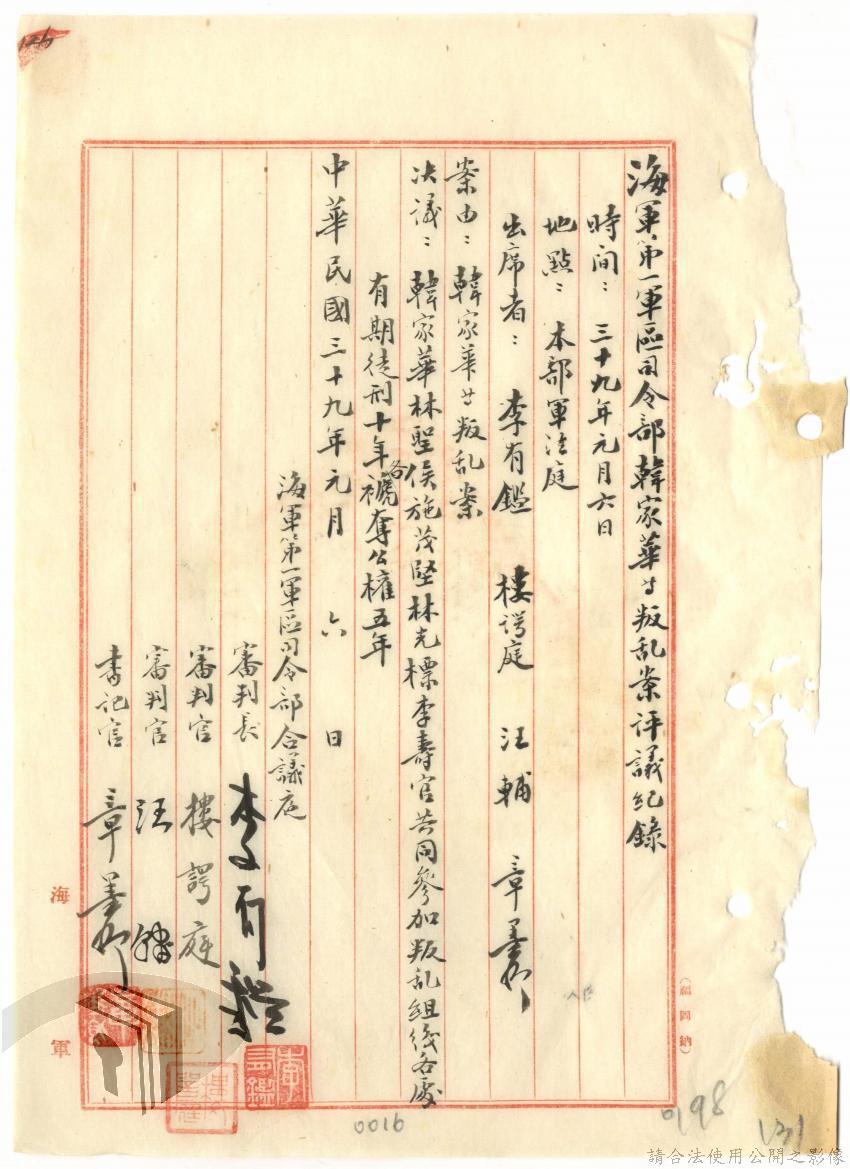 海軍第一軍區司令部韓家華等叛乱案评議紀錄
時间：三十九年元月六日
地點：本部軍法庭
出席者：李有鑑 樓諤庭 汪輔 章
案由：韓家華等叛乱案
决議：韓家華林聖侯施茂堅林光標李壽官共同參加叛乱組织各處
有期徒刑十年各褫奪公權五年
中華民國三十九年元月 六 日
海軍第一軍區司令部合議庭
審判長 李有鑑
審判官 樓諤庭
審判官 汪
書記官 章
海 軍
126
0016
0198
131
請合法使用公開之影像